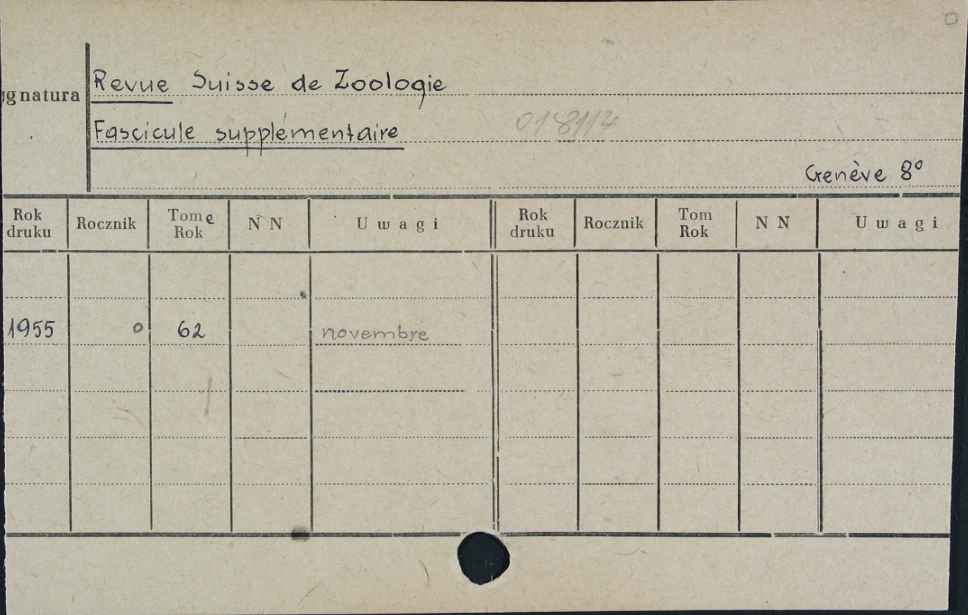 Revue Suisse de Zoologie
gnatura
Fascicule supplémentaire 018114
Genève 8°
Rok druku Rocznik Tome Rok N N Uwagi Rok druku Rocznik Tom Rok N N Uwagi
1955 62 novembre